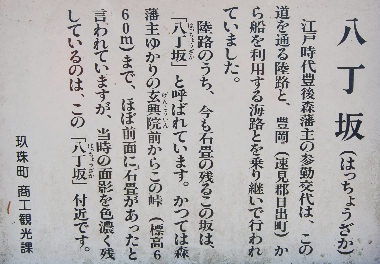 八丁坂(はっちょうざか)
江戸時代豊後森藩主の参勤交代は、この
道を通る陸路と、豊岡(速見郡日出町)か
ら船を利用する海路とを乗り継いで行われ
ていました。
陸路のうち、今も石畳の残るこの坂は、
「八丁坂」と呼ばれています。かつては森
藩主ゆかりの玄興院前からこの峠(標高6
60m)まで、ほぼ前面に石畳があったと
言われていますが、当時の面影を色濃く残
しているのは、この「八丁坂」付近です。
玖珠町 商工観光課